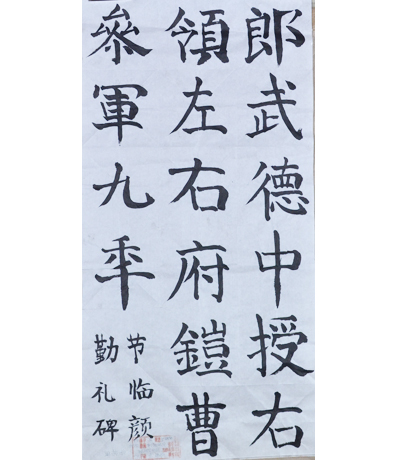 郎武德中授右
領左右府鎧曹
叅軍九年
节临颜
勤礼碑